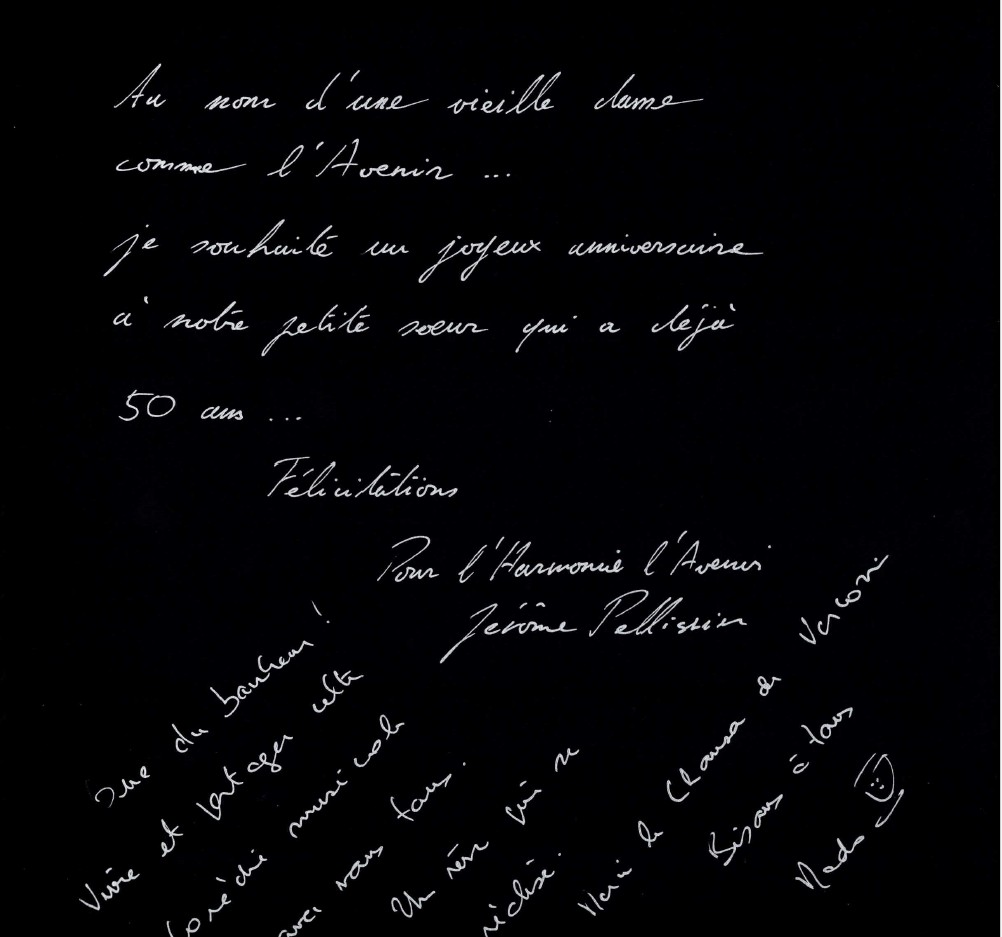 Au nom d'une vieille dame
comme l'Avenir ...
je souhaite un joyeux anniversaire
à notre petite soeur qui a déjà
50 ans ...
Félicitations
Pour l'Harmonie l'Avenir
Jérôme Pellissier
Que du bonheur !
Vivre et partager cette
comédie musicale
avec vous tous.
Un rêve qui se
réalise.
Merci la Chanson de
Bisous à tous
Nado